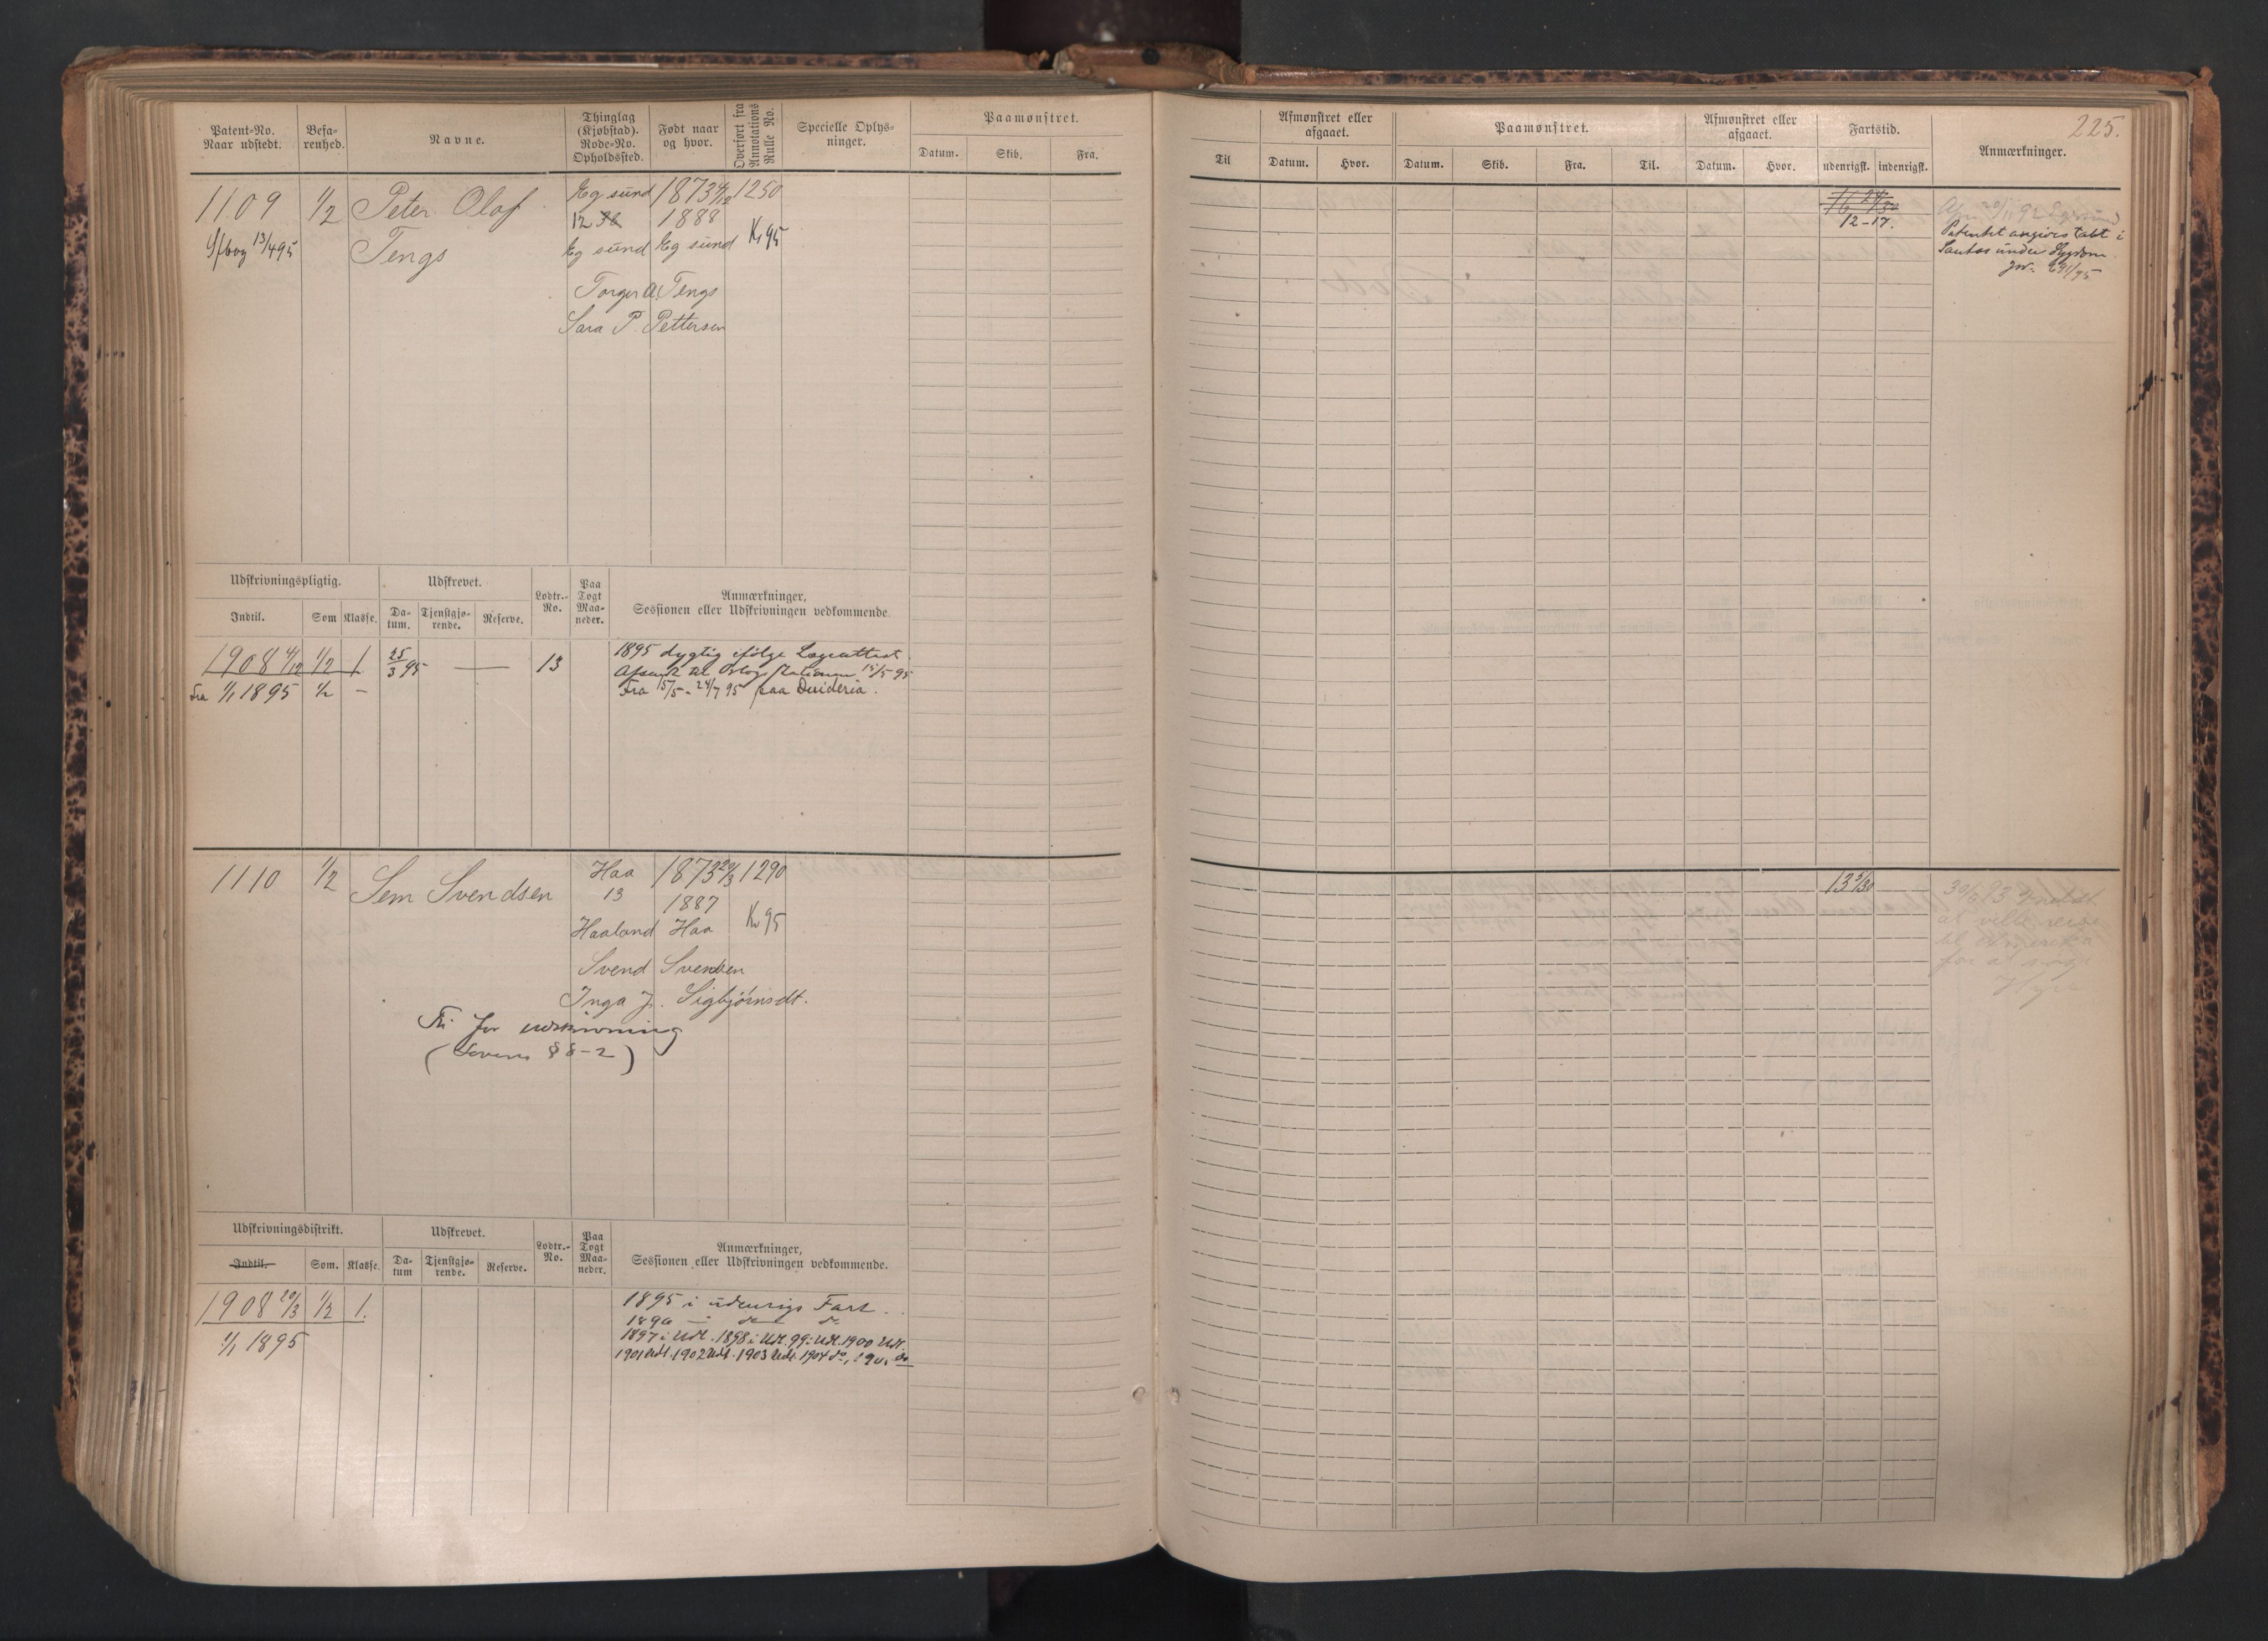 225.
Patent-No. Naar udstedt.
Befarenhed.
Navne.
Thinglag (Kjøbstad). Rode-No. Opholdssted.
Født naar og hvor.
Overført fra Annotations Rulle No.
Specielle Oplysninger.
Paamønstret.
Datum. Skib. Fra.
Til
Afmønstret eller afgaaet.
Datum. Hvor.
Paamønstret.
Datum. Skib. Fra. Til.
Afmønstret eller afgaaet.
Datum. Hvor.
Fartstid.
udenrigsk. indenrigsk.
Anmærkninger.
1109 1/2 Peter Olaf Egsund 1873 4/12 1250
12 1888
Sfbog 13/4 95 Tengs Egsund Egsund K 95
Torger A. Tengs
Sara P. Pettersen
12-17.
20/11 92 Egersund
Patentet angives tabt i
Santos under Sygdom
Udskrivningspligtig.
Indtil. Som Klasse.
Udskrevet.
Datum. Tjenstgjørende. Reserve.
Lodtr.-No.
Paa Togt Maaneder.
Anmærkninger, Sessionen eller Udskrivningen vedkommende.
1908 4/12 1/2 1. 25/3 95 — 13 1895 dygtig ifølge Lægeattest.
Afsendt til Oslogs Stationen 15/5 95
Fra 1/1 1895 1/2 — Fra 15/5 - 24/7 95 paa Desideria.
1110 1/2 Sem Svendsen Haa 1873 20/3 1290
13 1887
Haaland Haa K 95
Svend Svendsen
Inga J. Sigbjørnsdt.
Fri for udskrivning
(Lovens § 8-2)
13 5/30
30/9 93
at ville reise
til Amerika
for at søge
Hyre
Udskrivningsdistrikt.
Indtil. Som. Klasse.
Udskrevet.
Datum Tjenstgjørende. Reserve.
Lodtr.-No.
Paa Togt Maaneder.
Anmærkninger, Sessionen eller Udskrivningen vedkommende.
1908 20/3 1/2 1. 1895 i udenrigs Fart.
1896
1/1 1895 1897 i Udl. 1898 i Udl. 99 i Udl. 1900 Udl.
1901 Udl. 1902 Udl. 1903 Udl. 1904 do, 1905 do